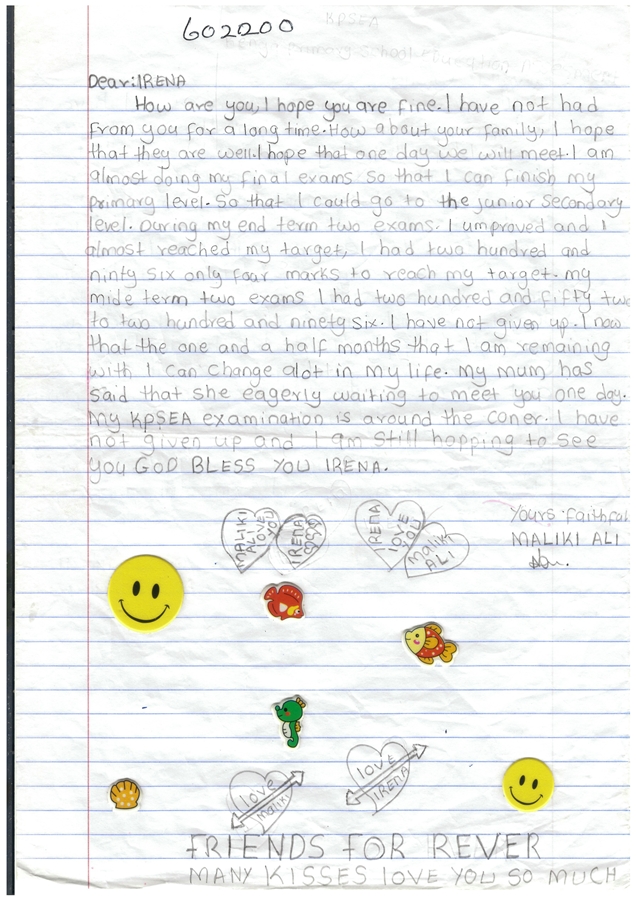 602200
KPSEA
Dear:IRENA
How are you, I hope you are fine. I have not had
from you for a long time. How about your family, I hope
that they are well. I hope that one day we will meet. I am
almost doing my final exams. So that I can finish my
primary level. So that I could go to the junior secondary
level. During my end term two exams. I umproved and I
almost reached my target, I had two hundred and
ninty six only four marks to reach my target. my
mide term two exams I had two hundred and fifty two
to two hundred and ninety six. I have not given up. I now
that the one and a half months that I am remaining
with I can change alot in my life. My mum has
said that she eagerly waiting to meet you one day.
My KPSEA examination is around the coner. I have
not given up and I am still hopping to see
you GOD BLESS YOU IRENA.
Yours faithful
MALIKI ALI
MALIKI ALI LOVE YOU
IRENA
IRENA LOVE YOU
maliki ALI
love maliki
love IRENA
FRIENDS FOR REVER
MANY KISSES LOVE YOU SO MUCH